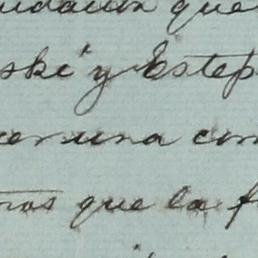 que
ski y Estep
cer una con
nos que la f